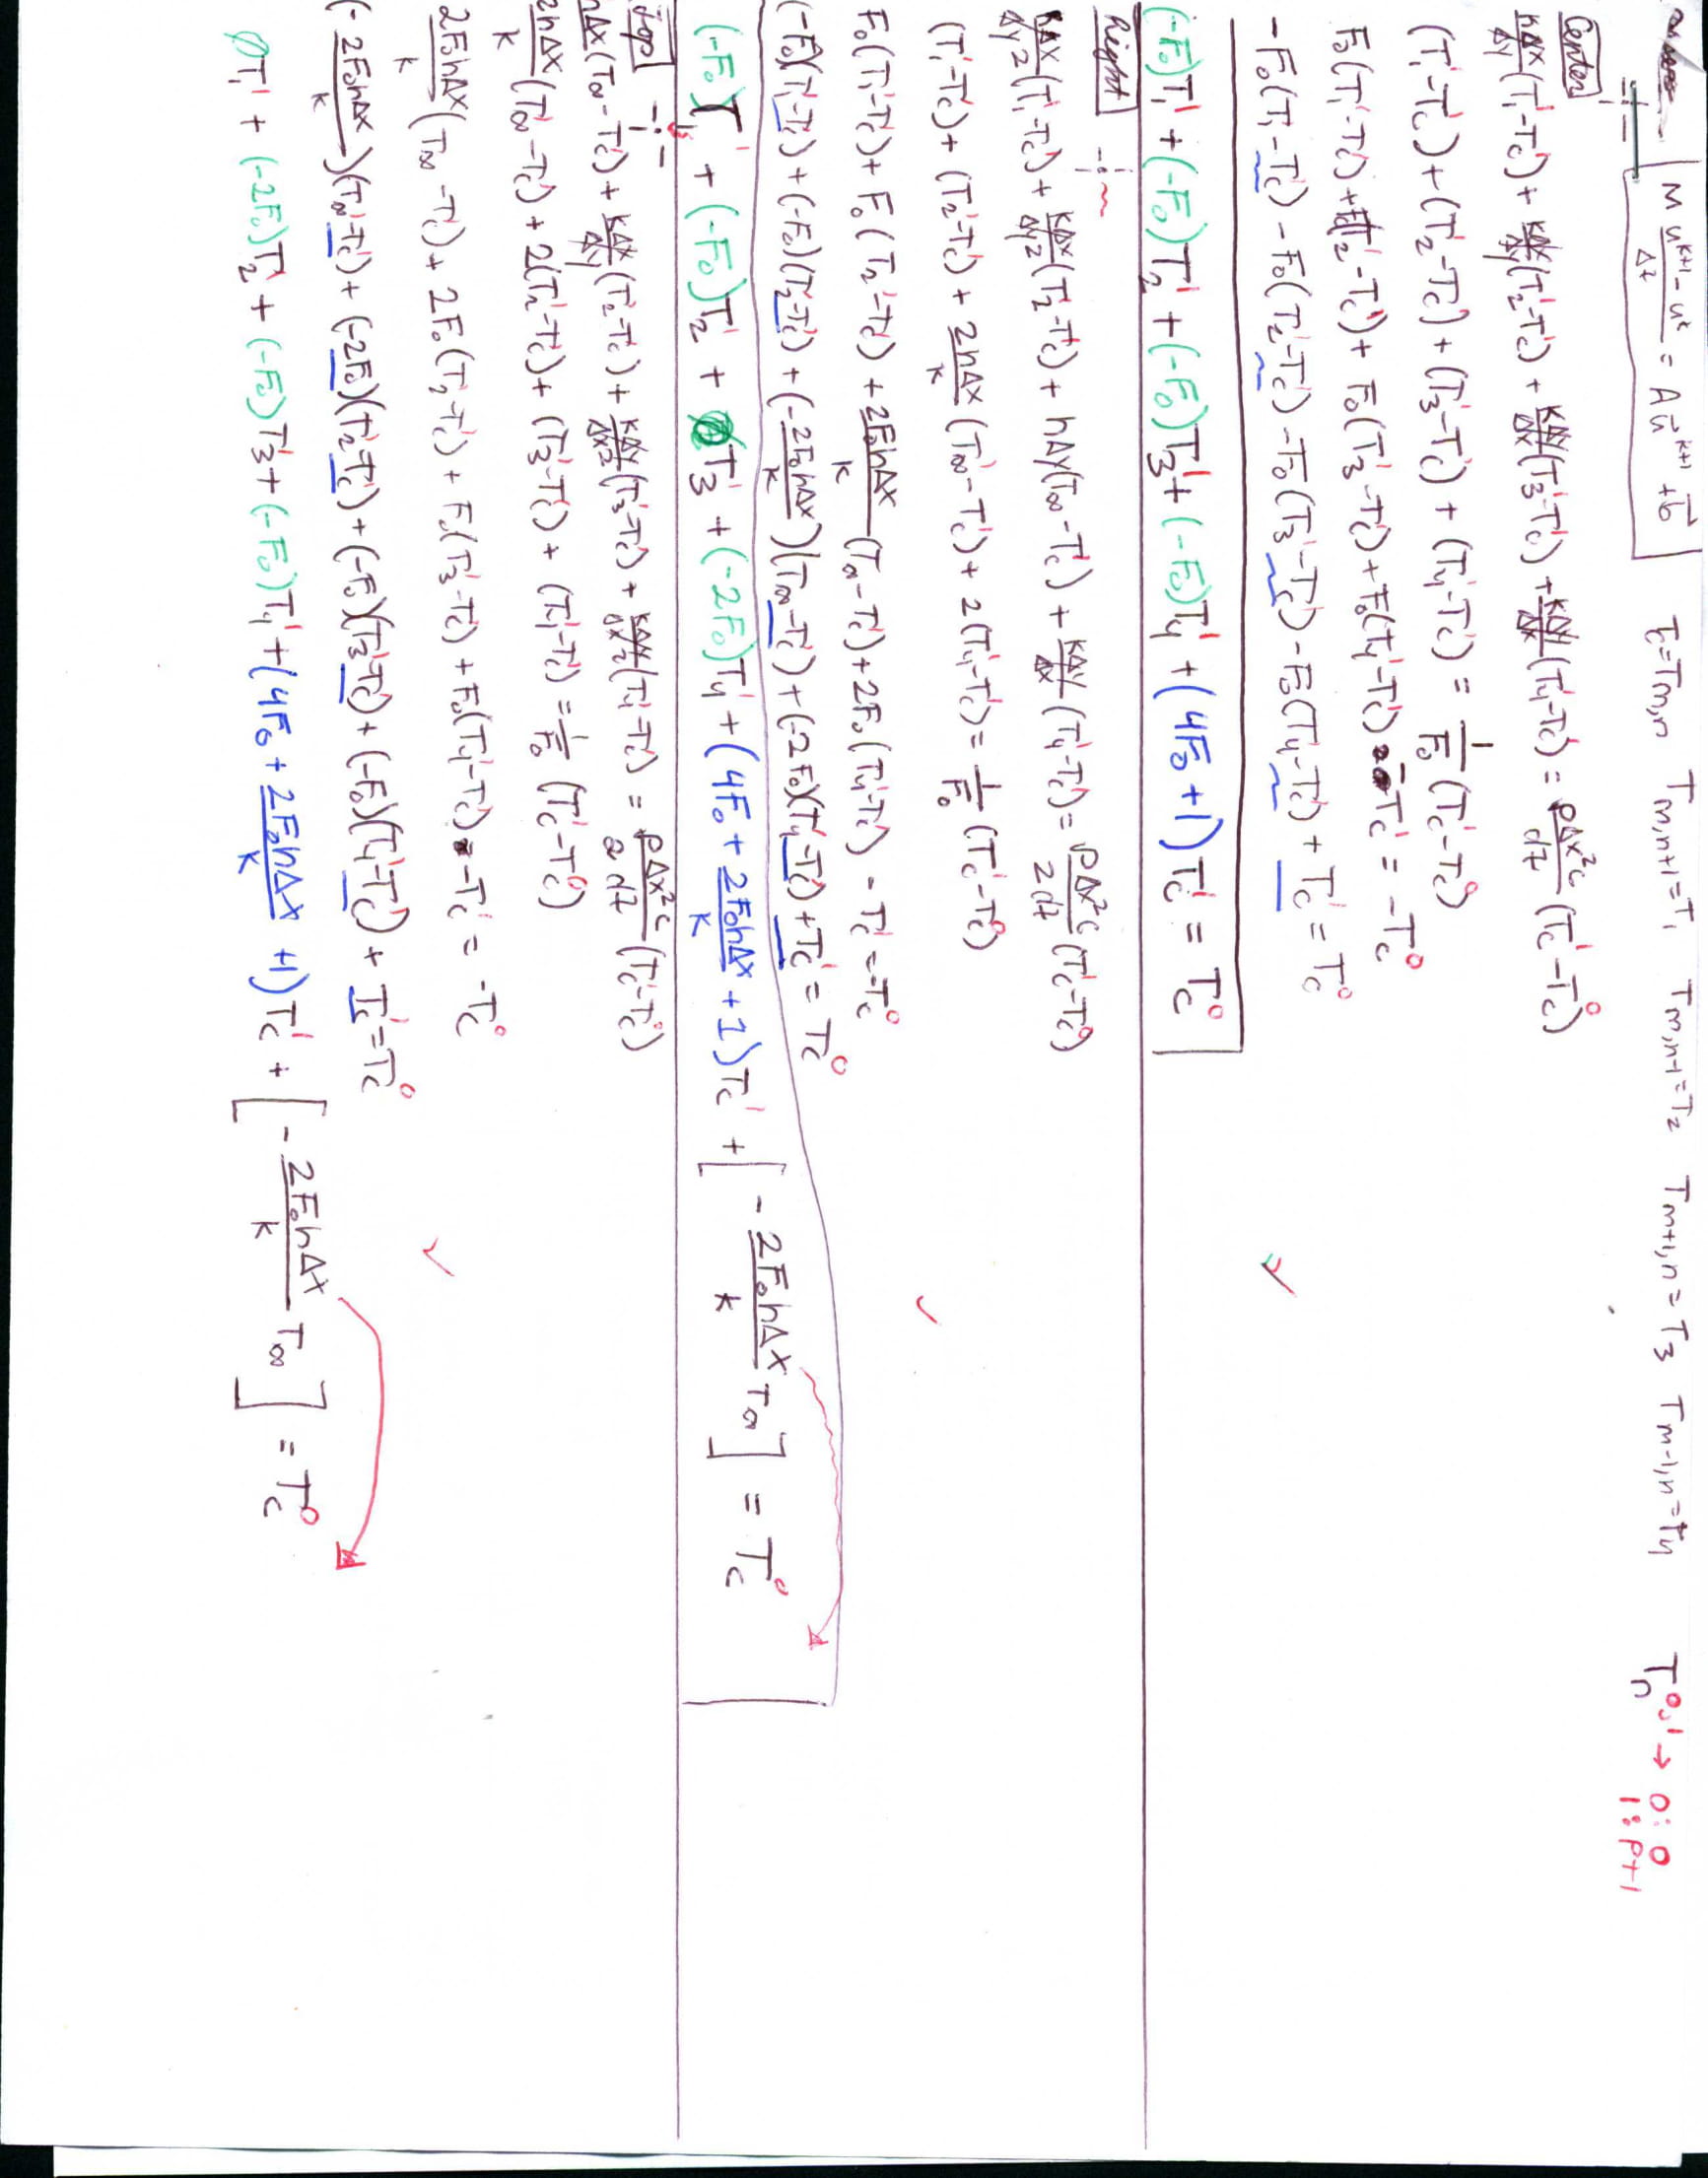 M (u^{k+1} - u^k)/Δt = A u⃗^{k+1} + b⃗    Tc = Tm,n    Tm,n+1 = T1    Tm,n-1 = T2    Tm+1,n = T3    Tm-1,n = T4    Tn^{0,1} → 0: 0
1: P+1
Center
kΔx/Δy (T1' - Tc') + kΔx/Δy (T2' - Tc') + kΔy/Δx (T3' - Tc') + kΔy/Δx (T4' - Tc') = ρΔx²c/dt (Tc' - Tc⁰)
(T1' - Tc') + (T2' - Tc') + (T3' - Tc') + (T4' - Tc') = 1/Fo (Tc' - Tc⁰)
Fo(T1' - Tc') + Fo(T2' - Tc') + Fo(T3' - Tc') + Fo(T4' - Tc') - Tc' = -Tc⁰
-Fo(T1 - Tc') - Fo(T2' - Tc') - Fo(T3' - Tc') - Fo(T4 - Tc') + Tc' = Tc⁰ ✓
(-Fo)T1' + (-Fo)T2' + (-Fo)T3' + (-Fo)T4' + (4Fo + 1)Tc' = Tc⁰
Right
kΔx/Δy2 (T1' - Tc') + kΔx/Δy2 (T2' - Tc') + hΔy(T∞ - Tc') + kΔy/Δx (T4' - Tc') = ρΔx²c/2dt (Tc' - Tc⁰)
(T1' - Tc') + (T2' - Tc') + 2hΔx/k (T∞' - Tc') + 2(T4' - Tc') = 1/Fo (Tc' - Tc⁰)
Fo(T1' - Tc') + Fo(T2' - Tc') + 2FohΔx/k (T∞ - Tc') + 2Fo(T4' - Tc') - Tc' = -Tc⁰ ✓
(-Fo)(T1' - Tc') + (-Fo)(T2' - Tc') + (-2FohΔx/k)(T∞ - Tc') + (-2Fo)(T4' - Tc') + Tc' = Tc⁰
(-Fo)T1' + (-Fo)T2' + 0T3' + (-2Fo)T4' + (4Fo + 2FohΔx/k + 1)Tc' + [-2FohΔx/k T∞] = Tc⁰
Top
hΔx(T∞ - Tc') + kΔx/Δy (T2' - Tc') + kΔy/Δx2 (T3' - Tc') + kΔy/Δx2 (T4' - Tc') = ρΔx²c/2dt (Tc' - Tc⁰)
2hΔx/k (T∞' - Tc') + 2(T2' - Tc') + (T3' - Tc') + (T4' - Tc') = 1/Fo (Tc' - Tc⁰)
2FohΔx/k (T∞ - Tc') + 2Fo(T2' - Tc') + Fo(T3' - Tc') + Fo(T4' - Tc') - Tc' = -Tc⁰
(-2FohΔx/k)(T∞' - Tc') + (-2Fo)(T2' - Tc') + (-Fo)(T3' - Tc') + (-Fo)(T4' - Tc') + Tc' = Tc⁰ ✓
0T1' + (-2Fo)T2' + (-Fo)T3' + (-Fo)T4' + (4Fo + 2FohΔx/k + 1)Tc' + [-2FohΔx/k T∞] = Tc⁰